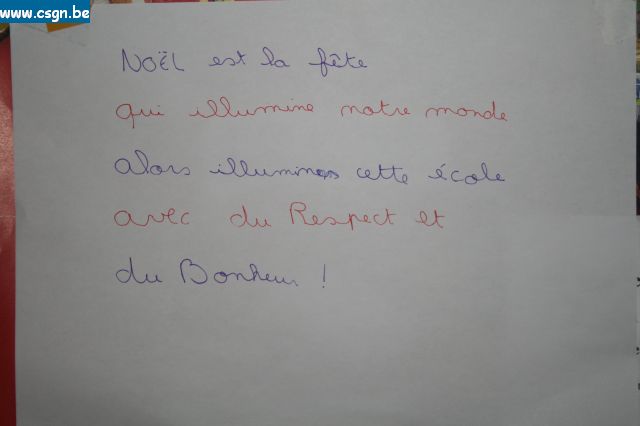 www.csgn.be
NOËL est la fête
qui illumine notre monde
alors illuminons cette école
avec du Respect et
du Bonheur !